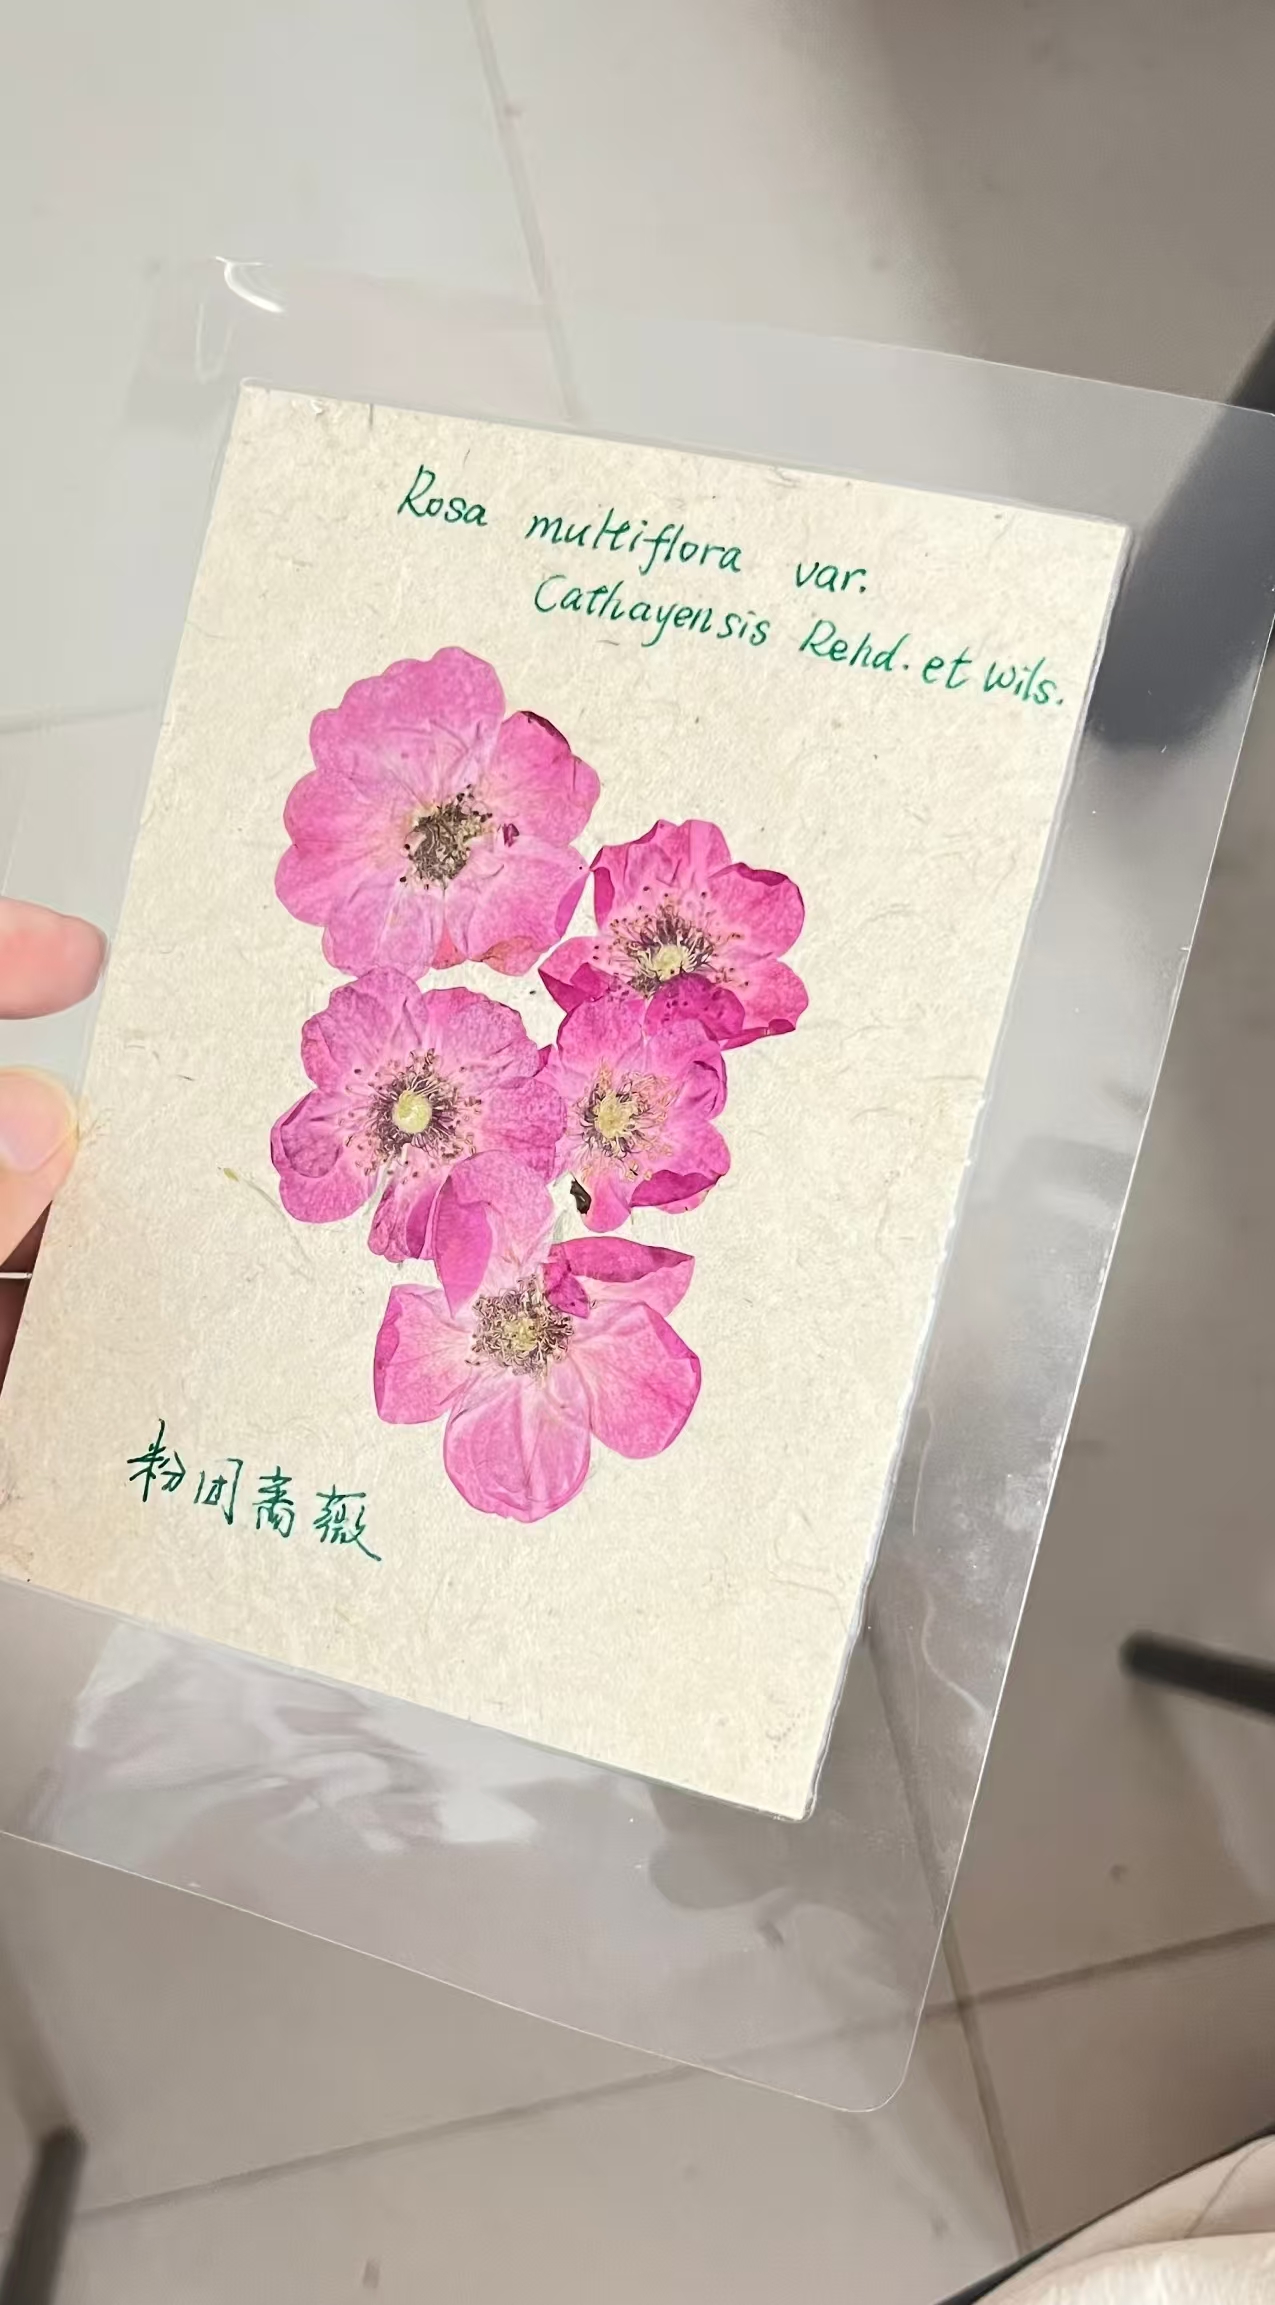 Rosa multiflora var.
Cathayensis Rehd. et Wils.
粉团蔷薇